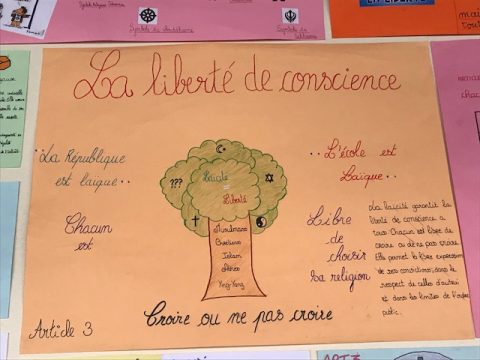 Symbole du
Symbole du
La liberté de conscience
"La République
est laïque"
Chacun
est
???
Laïcité
=
Liberté
Musulmans
Chrétiens
Islam
Athée
Ying Yang
"L'école est
Laïque"
Libre
de
choisir
sa religion
La laïcité garantit la
liberté de conscience à
tous. Chacun est libre de
croire ou de ne pas croire.
Elle permet la libre expression
de ses convictions, dans le
respect de celles d'autrui
et dans les limites de l'ordre
public.
Croire ou ne pas croire
Article 3